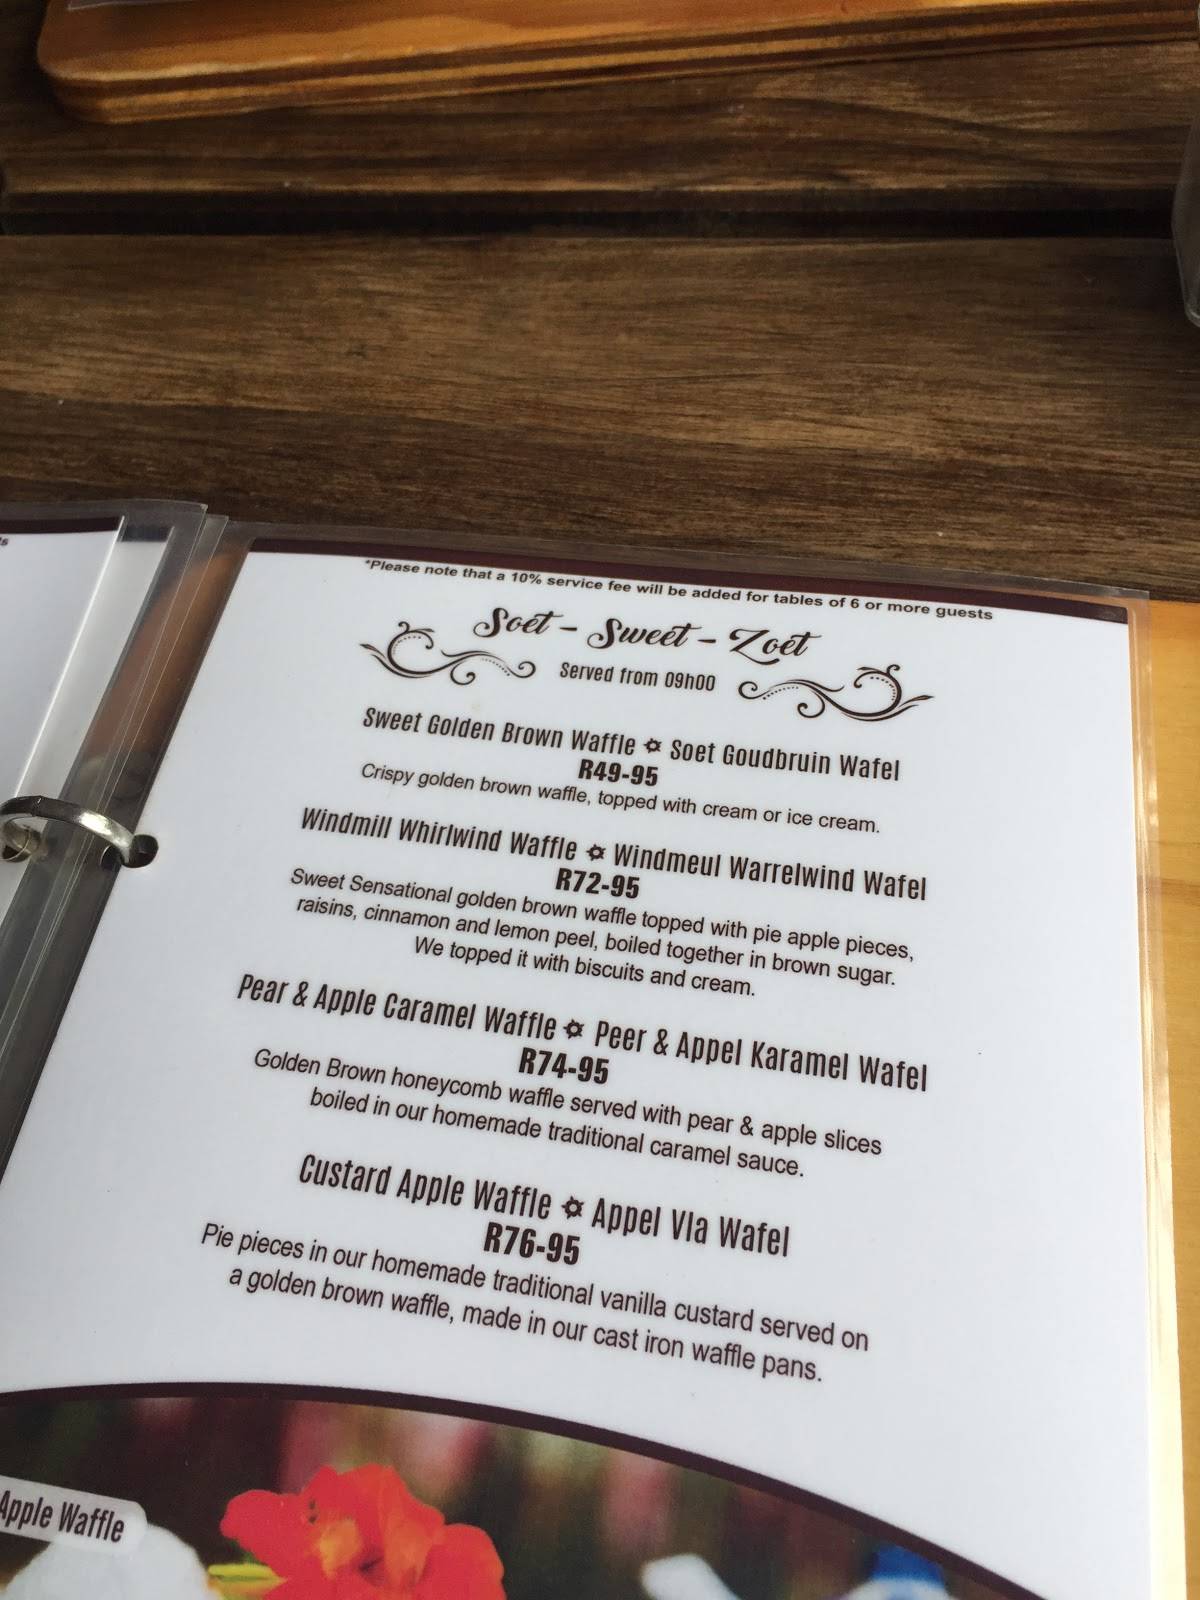 *Please note that a 10% service fee will be added for tables of 6 or more guests
Soet - Sweet - Zoet
Served from 09h00
Sweet Golden Brown Waffle Soet Goudbruin Wafel
R49-95
Crispy golden brown waffle, topped with cream or ice cream.
Windmill Whirlwind Waffle Windmeul Warrelwind Wafel
R72-95
Sweet Sensational golden brown waffle topped with pie apple pieces,
raisins, cinnamon and lemon peel, boiled together in brown sugar.
We topped it with biscuits and cream.
Pear & Apple Caramel Waffle Peer & Appel Karamel Wafel
R74-95
Golden Brown honeycomb waffle served with pear & apple slices
boiled in our homemade traditional caramel sauce.
Custard Apple Waffle Appel Vla Wafel
R76-95
Pie pieces in our homemade traditional vanilla custard served on
a golden brown waffle, made in our cast iron waffle pans.
Apple Waffle